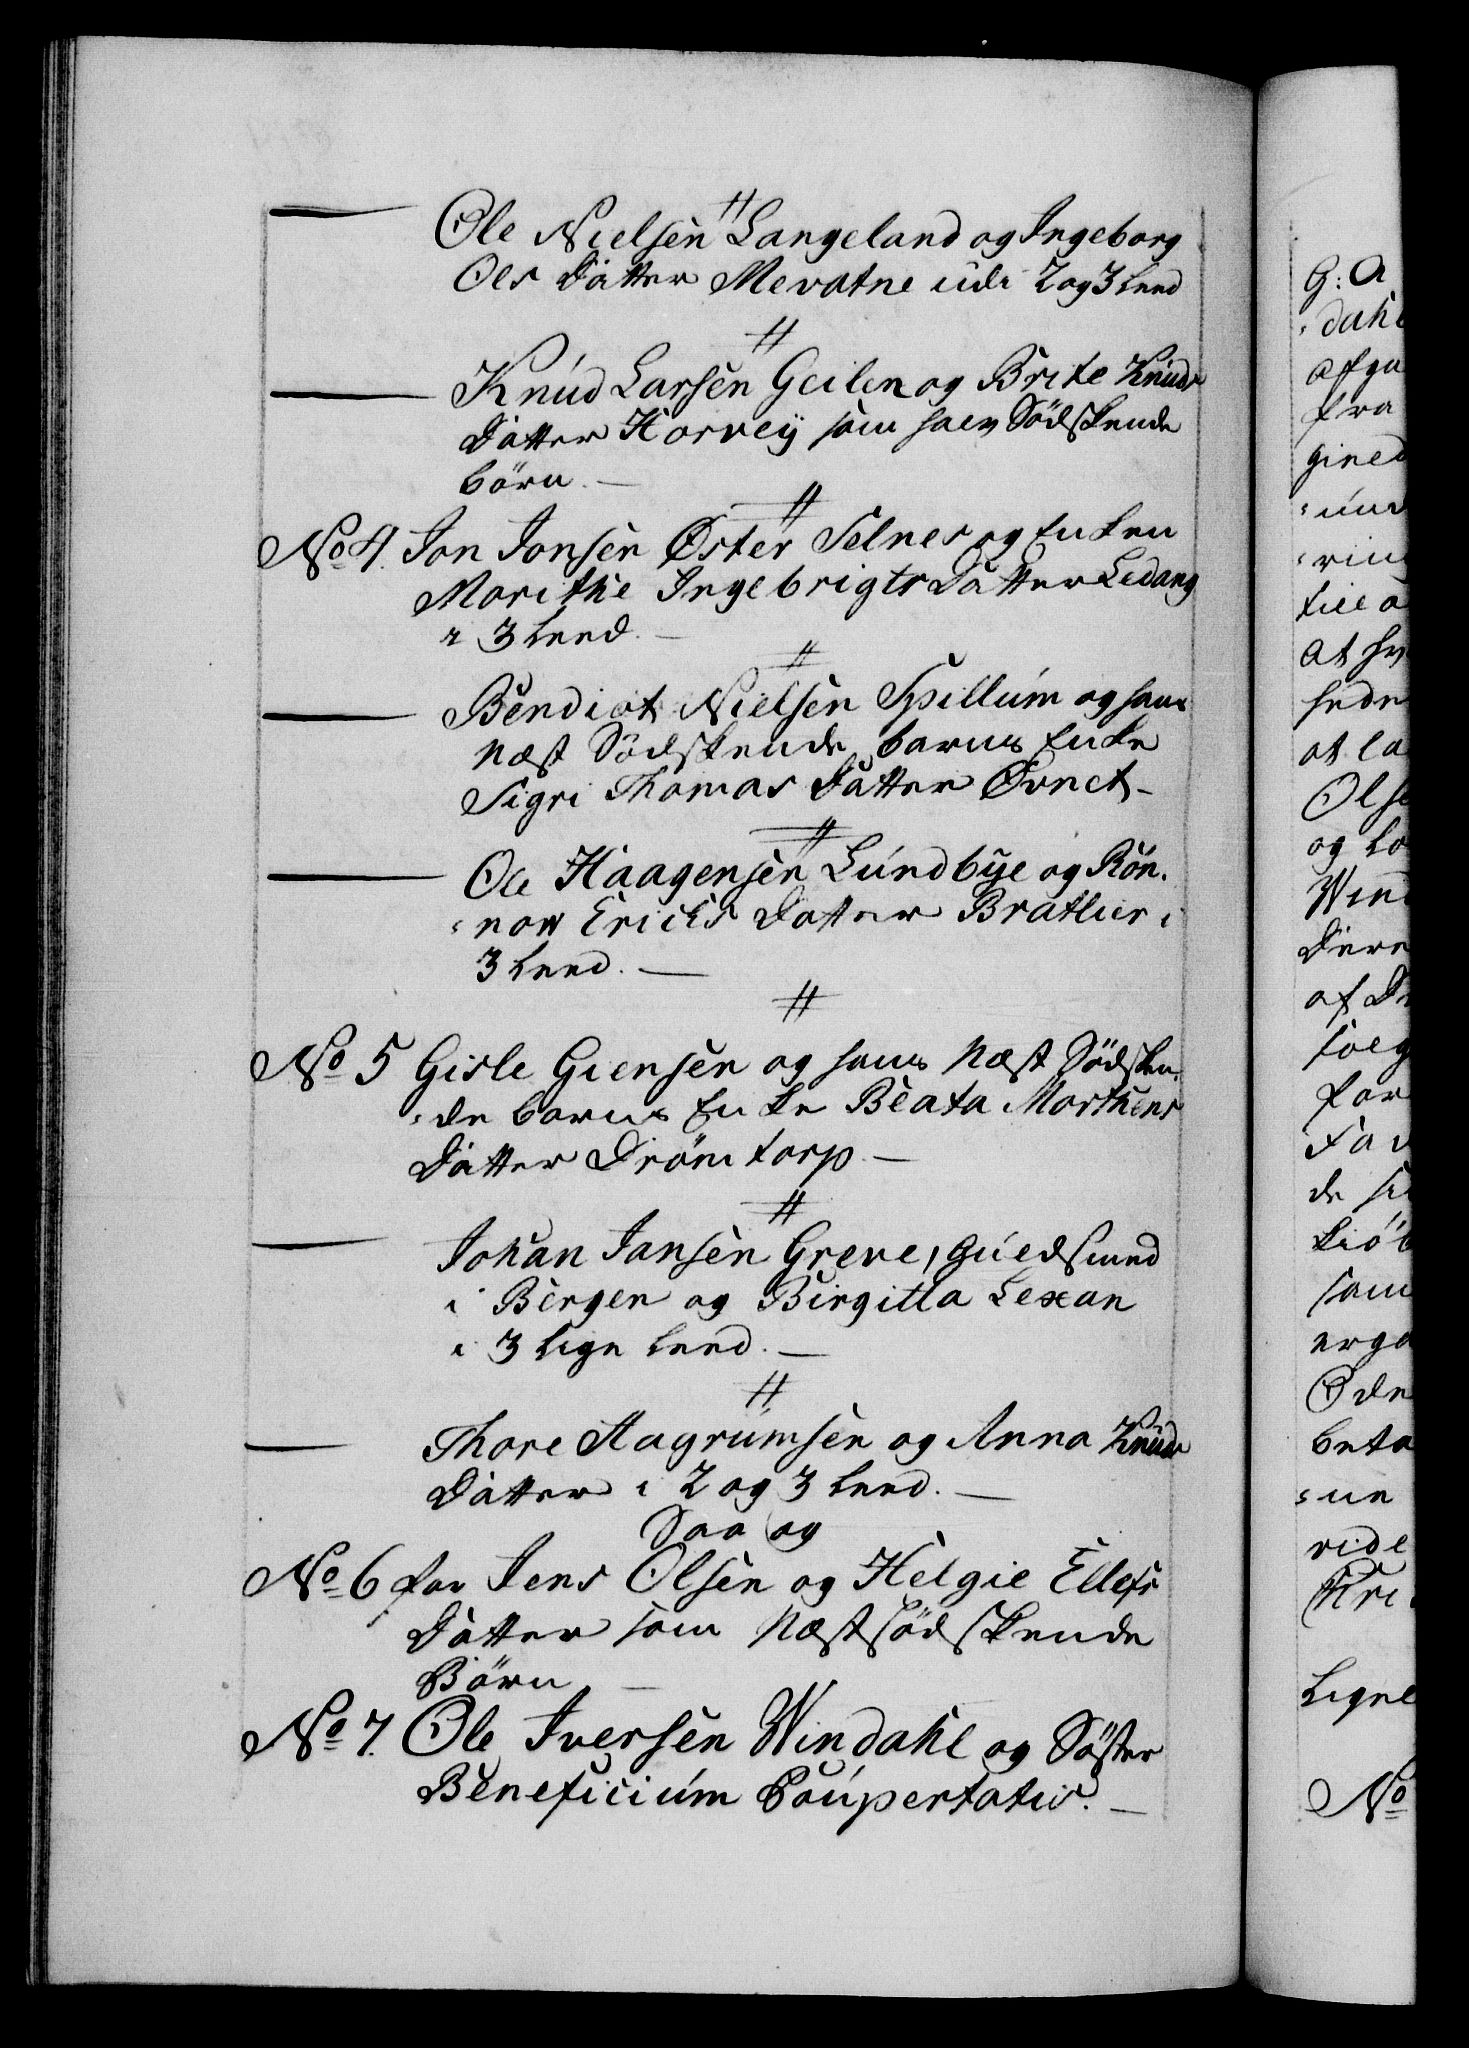 //
Ole Nielsen Langeland og Ingeborg
Ols Datter Mevatne udi 2 og 3 Leed
//
Knud Larsen Geilen og Brite Knuds
Datter Horvey som halv Södskende
börn. —
//
No 4. Jon Jonsen Øster Selnes og Enken
Morithe Ingebrigts Datter Ledang
i 3 Leed. —
//
Bendict Nielsen Spillum og hans
Næst Södskende barns Enke
Sigri Thomas Datter Øvnet —
//
Ole Haagensen Lundbye og Rön-
now Erichs Datter Bratlier i
3 Leed. —
//
No 5 Gisle Giensen og hans Næst Södsken-
de barns Enke Beata Morthens
Datter Drömtorp —
//
Johan Jansen Greve, Guedsmed
i Bergen og Birgitta Lexan
i 3 Lige Leed. —
//
Thore Aagrumsen og Anna Knuds
Datter i 2 og 3 Leed. —
Saa og
No 6 for Jens Olsen og Helgie Ellefs
Datter som Næstsödskende
Börn —
No 7. Ole Iversen Windahl og Söster
Beneficium Paupertatis. —
G: A
dahl
afga
fra
gined
und
till a
at hv
at la
Olse
og Lo
Wind
af D
for
de si
kiöb
som
erga
beta
ne
vide
Kri
Ligne
No